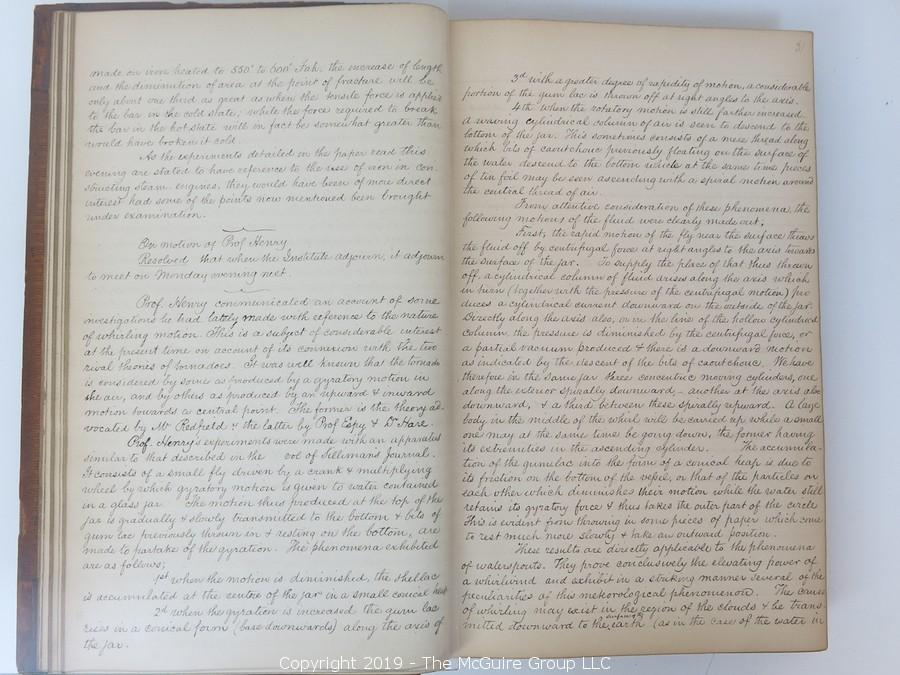 made on iron heated to 550° to 600° Fah. the increase of length
and the diminution of area at the point of fracture will be
only about one third as great as when the tensile force is applied
to the bar in the cold state, while the force required to break
the bar in the hot state will in fact be somewhat greater than
would have broken it cold.
As the experiments detailed in the paper read this
evening are stated to have reference to the use of iron in con-
structing steam engines, they would have been of more direct
interest had some of the points now mentioned been brought
under examination.
On motion of Prof Henry
Resolved that when the Institute adjourn, it adjourn
to meet on Monday evening next.
Prof. Henry communicated an account of some
investigations he had lately made with reference to the nature
of whirling motion. This is a subject of considerable interest
at the present time on account of its connexion with the two
rival theories of tornadoes. It was well known that the tornado
is considered by some as produced by a gyratory motion in
the air, and by others as produced by an upward & inward
motion towards a central point. The former is the theory ad-
vocated by Mr Redfield & the latter by Prof Espy & Dr Hare.
Prof. Henry's experiments were made with an apparatus
similar to that described in the vol of Sillimans Journal.
It consists of a small fly driven by a crank & multiplying
wheel by which gyratory motion is given to water contained
in a glass jar The motion thus produced at the top of the
jar is gradually & slowly transmitted to the bottom & bits of
gum lac previously thrown in & resting on the bottom, are
made to partake of the gyration. The phenomena exhibited
are as follows;
1st when the motion is diminished, the shellac
is accumulated at the centre of the jar in a small conical heap
2d when the gyration is increased the gum lac
rises in a conical form (base downwards) along the axis of
the jar.
31
3d with a greater degree of rapidity of motion, a considerable
portion of the gum lac is thrown off at right angles to the axis.
4th when the rotatory motion is still farther increased
a waving cylindrical column of air is seen to descend to the
bottom of the jar. This sometimes consists of a mere thread along
which bits of caoutchouc previously floating on the surface of
the water descend to the bottom while at the same time pieces
of tin foil may be seen ascending with a spiral motion around
the central thread of air.
From attentive consideration of these phenomena, the
following motions of the fluid were clearly made out.
First, the rapid motion of the fly near the surface throws
the fluid off by centrifugal force at right angles to the axis towards
the surface of the jar. To supply the place of that thus thrown
off, a cylindrical column of fluid arises along the axis which
in turn (together with the pressure of the centrifugal motion) pro
duces a cylindrical current downward on the outside of the jar.
Directly along the axis also, or in the line of the hollow cylindrical
column, the pressure is diminished by the centrifugal force, or
a partial vacuum produced & there is a downward motion
as indicated by the descent of the bits of caoutchouc. We have
therefore in the same jar three concentric moving cylinders, one
along the exterior spirally downward, - another at the axis also
downward, & a third between these spirally upward. A large
body in the middle of the whirl will be carried up while a small
one may at the same time be going down, the former having
its extremities in the ascending cylinders. The accumula-
tion of the gum lac into the form of a conical heap is due to
its friction on the bottom of the vessel, or that of the particles on
each other which diminishes their motion while the water still
retains its gyratory force & thus takes the outer part of the circle
This is evident from throwing in some pieces of paper which come
to rest much more slowly & take an outward position.
These results are directly applicable to the phenomena
of waterspouts. They prove conclusively the elevating power of
a whirlwind and exhibit in a striking manner several of the
peculiarities of this meteorological phenomenon. The cause
of whirling may exist in the region of the clouds & be trans-
mitted downward to the surface of earth (as in the case of the water in
Copyright 2019 - The McGuire Group LLC